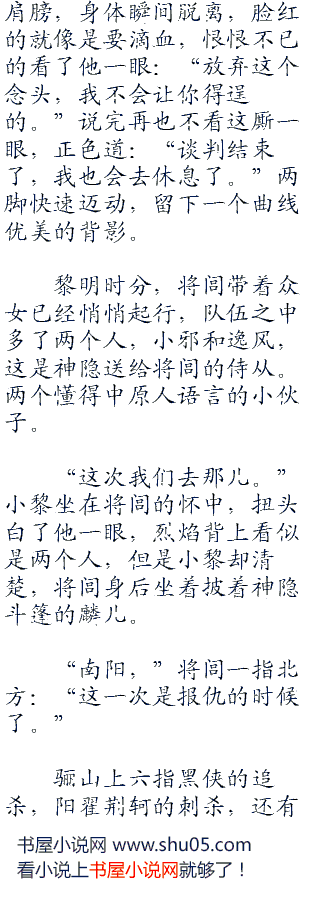 肩膀，身体瞬间脱离，脸红
的就像是要滴血，恨恨不已
的看了他一眼：“放弃这个
念头，我不会让你得逞
的。”说完再也不看这厮一
眼，正色道：“谈判结束
了，我也会去休息了。”两
脚快速迈动，留下一个曲线
优美的背影。
黎明时分，将闾带着众
女已经悄悄起行，队伍之中
多了两个人，小邪和逸风，
这是神隐送给将闾的侍从。
两个懂得中原人语言的小伙
子。
“这次我们去那儿。”
小黎坐在将闾的怀中，扭头
白了他一眼，烈焰背上看似
是两个人，但是小黎却清
楚，将闾身后坐着披着神隐
斗篷的麟儿。
“南阳，”将闾一指北
方：“这一次是报仇的时候
了。”
骊山上六指黑侠的追
杀，阳翟荆轲的刺杀，还有
书屋小说网 www.shu05.com
看小说上书屋小说网就够了！